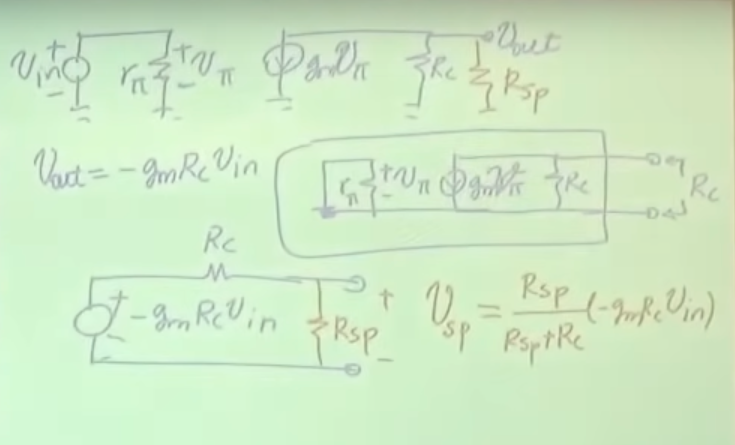 Vin + - rπ + Vπ - gmVπ Rc Vout Rsp
Vout = - gm Rc Vin
rπ + Vπ - gmVπ Rc Rc
Rc
+ - - gm Rc Vin Rsp + -
Vsp = Rsp / (Rsp + Rc) (- gm Rc Vin)